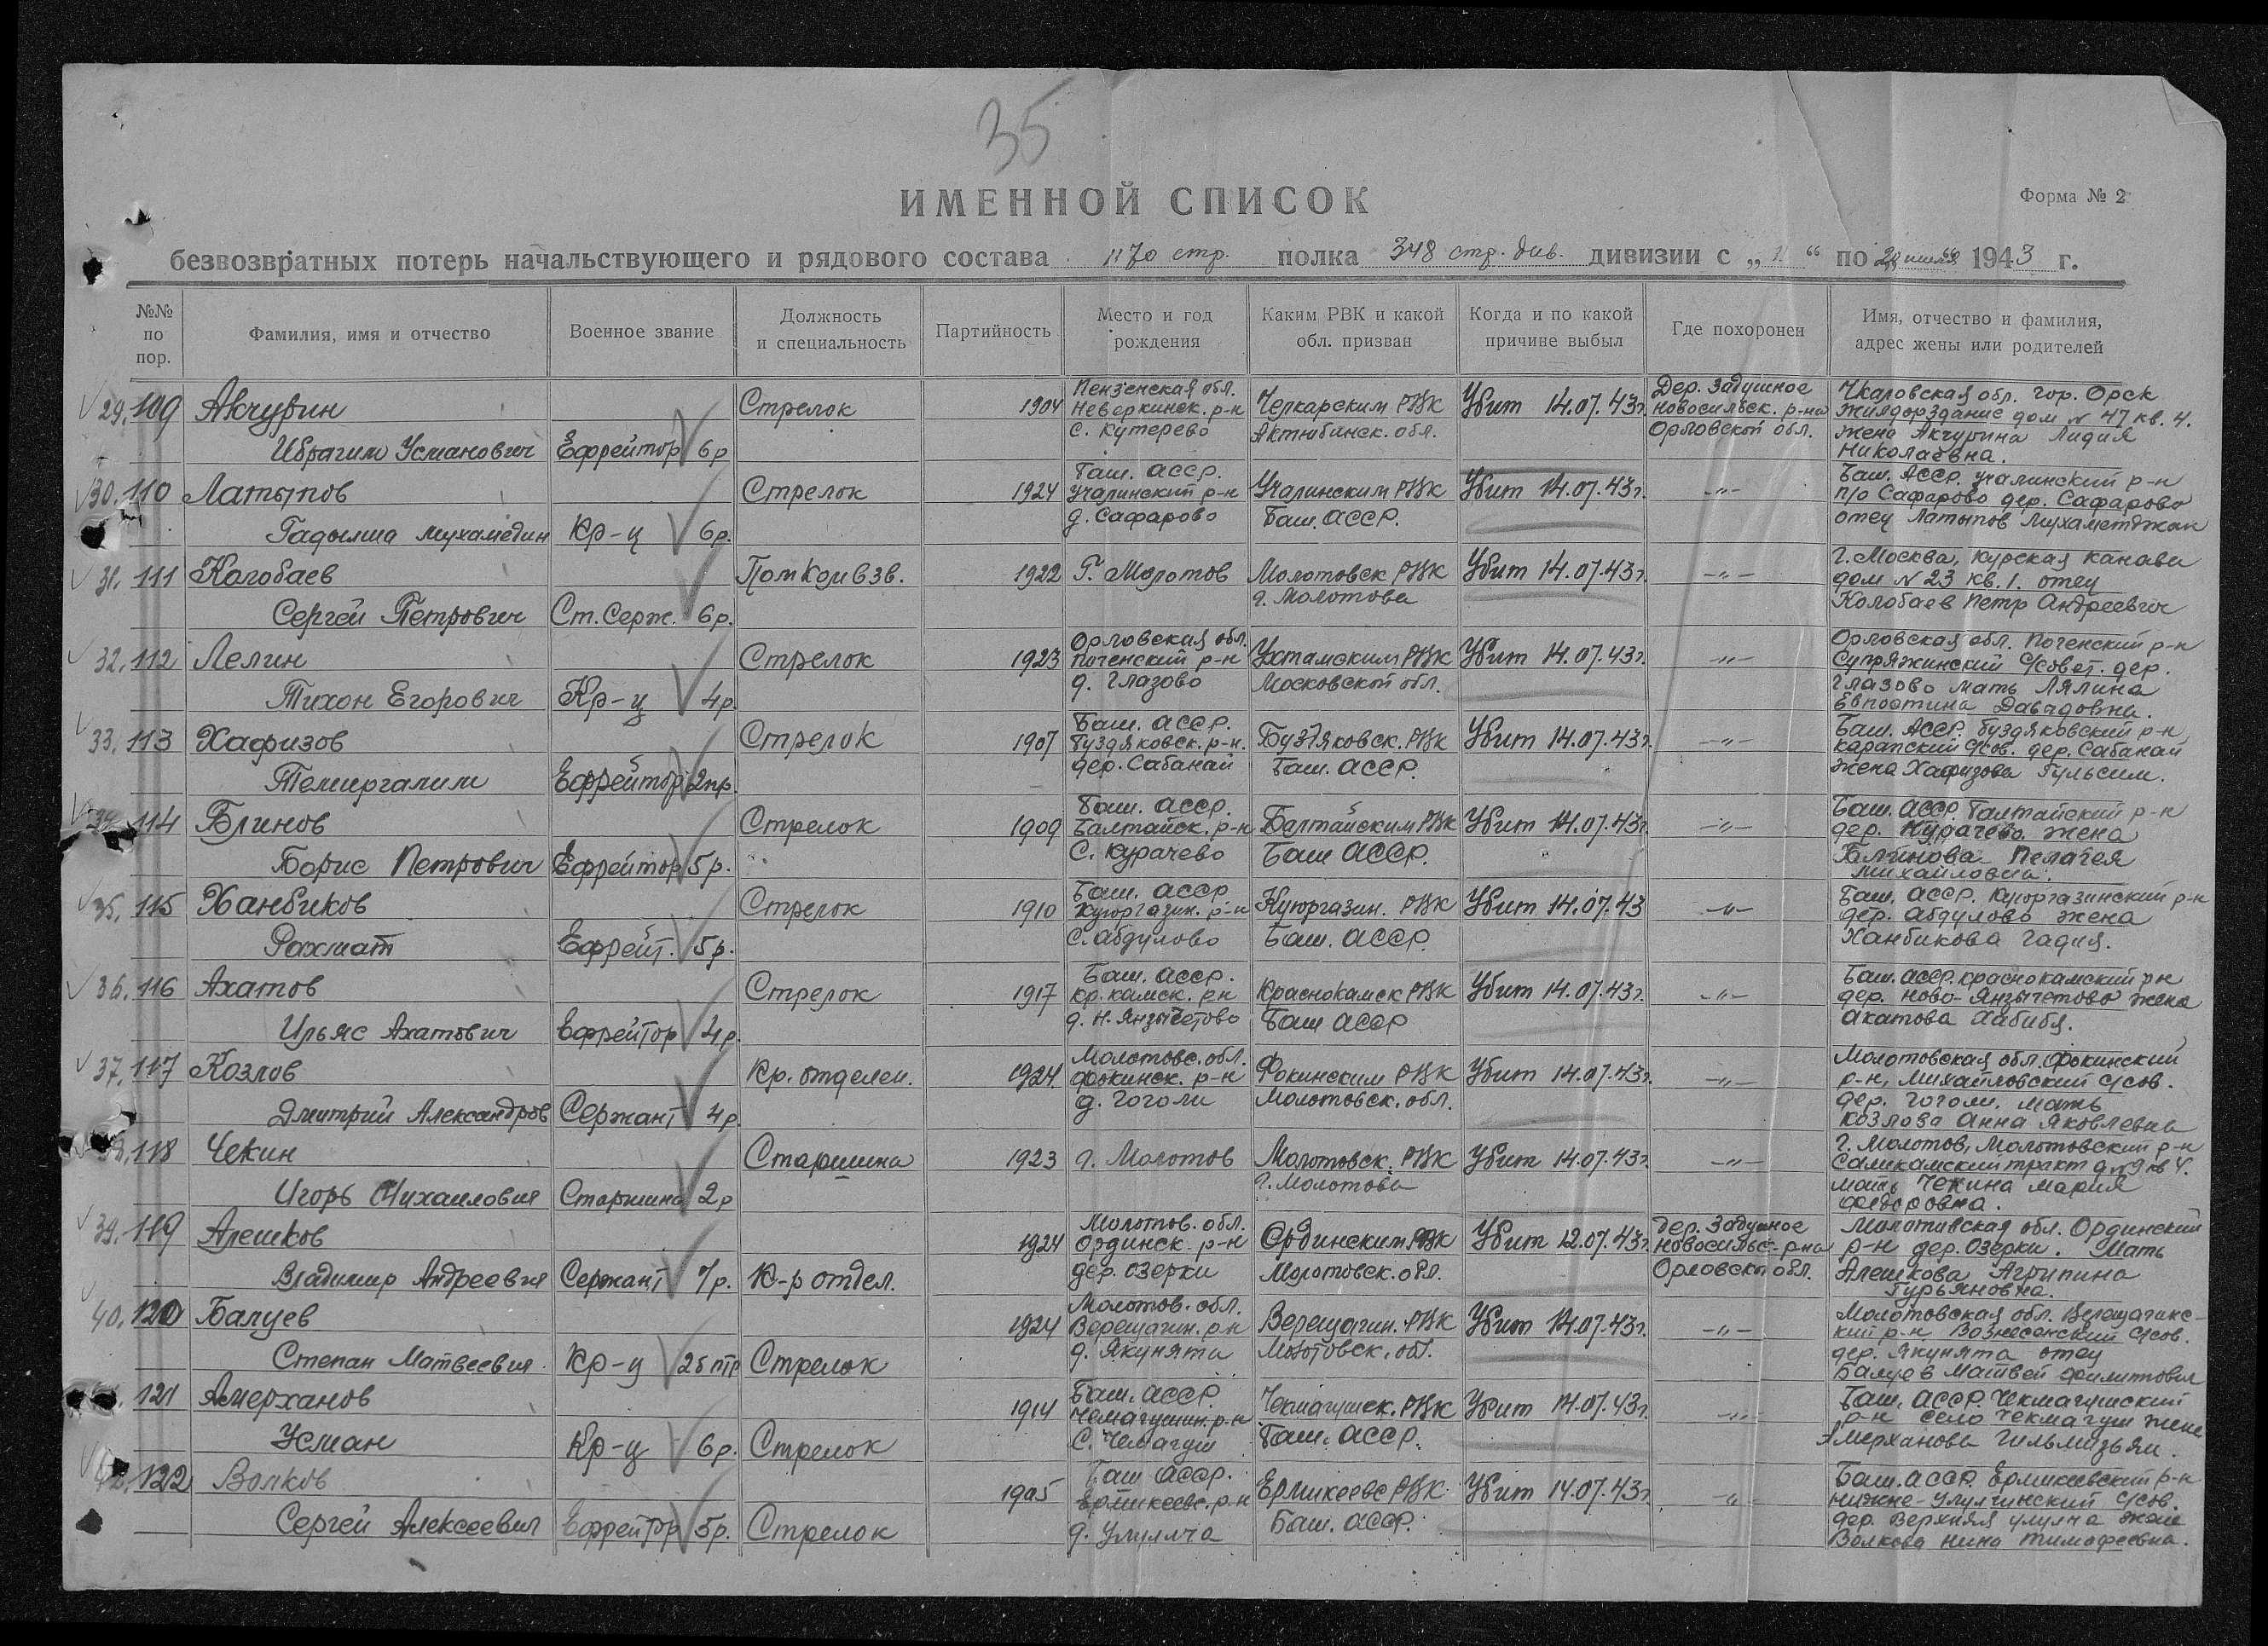 35
ИМЕННОЙ СПИСОК
Форма № 2
безвозвратных потерь начальствующего и рядового состава 1170 стр. полка 348 стр. див. дивизии с „ “ по 20 июля 1943 г.
№№ по пор. Фамилия, имя и отчество Военное звание Должность и специальность Партийность Место и год рождения Каким РВК и какой обл. призван Когда и по какой причине выбыл Где похоронен Имя, отчество и фамилия, адрес жены или родителей
29. 109 Акчурин Стрелок 1904 Пензенская обл. Неверкинск. р-н с. Кутерево Челкарским РВК Актюбинск. обл. Убит 14.07.43г. Дер. Задушное Новосильск. р-на Орловской обл. Чкаловская обл. гор. Орск Жилдорздание дом № 47 кв. 4. жена Акчурина Лидия Николаевна.
Ибрагим Усманович Ефрейтор 6р
30. 110 Латыпов Стрелок 1924 Баш. АССР. Учалинский р-н д. Сафарово Учалинским РВК Баш. АССР. Убит 14.07.43г. -"- Баш. АССР. Учалинский р-н п/о Сафарово дер. Сафарово отец Латыпов Мухаметджан
Гадылша Мухамедин Кр-ц 6р.
31. 111 Колобаев Помкомвзв. 1922 Г. Молотов Молотовск РВК г. Молотова Убит 14.07.43г. -"- г. Москва, Курская канава дом № 23 кв. 1. отец Колобаев Петр Андреевич
Сергей Петрович Ст. Серж. 6р.
32. 112 Лелин Стрелок 1923 Орловская обл. Поченский р-н д. Глазово Ухтамским РВК Московской обл. Убит 14.07.43г. -"- Орловская обл. Поченский р-н Супряжинский с/совет. дер. Глазово мать Лялина Евпостина Давыдовна.
Тихон Егорович Кр-ц 4р
33. 113 Хафизов Стрелок 1907 Баш. АССР. Буздяковск. р-н. дер. Сабанай Буздяковск. РВК Баш. АССР. Убит 14.07.43г. -"- Баш. АССР. Буздяковский р-н, с/сов. дер. Сабанай жена Хафизова Гульсим.
Темиргалим Ефрейтор 2пр
34. 114 Блинов Стрелок 1909 Баш. АССР. Балтайск. р-н с. Курачево Балтайским РВК Баш АССР. Убит 14.07.43г. -"- Баш. АССР. Балтайский р-н дер. Курачево жена Блинова Пелагея Михайловна.
Борис Петрович Ефрейтор 5р.
35. 115 Ханбиков Стрелок 1910 Баш. АССР Куюргазин. р-н с. Абдулово Куюргазин. РВК Баш. АССР. Убит 14.07.43 -"- Баш. АССР. Куюргазинский р-н дер. Абдулово жена Ханбикова Гадия.
Рахмат Ефрейт. 5р.
36. 116 Ахатов Стрелок 1917 Баш. АССР. Кр. камск. р-н д. Н. Янзычетово Краснокамск РВК Баш АССР Убит 14.07.43г. -"- Баш. АССР. Краснокамский р-н дер. Ново-Янзычетово жена Ахатова Хабибя.
Ильяс Ахатович Ефрейтор 4р
37. 117 Козлов Кр. отделен. 1924 Молотовс. обл. Фокинск. р-н д. Гоголи Фокинским РВК Молотовск. обл. Убит 14.07.43г. -"- Молотовская обл. Фокинский р-н, Михайловский с/сов. дер. Гоголи. мать Козлова Анна Яковлевна
Дмитрий Александров Сержант 4р
38. 118 Чекин Старшина 1923 г. Молотов Молотовск. РВК г. Молотова Убит 14.07.43г. -"- г. Молотов, Молотовский р-н Саликамский тракт д. № 9 кв 4. мать Чекина Мария Федоровна.
Игорь Михаилович Старшина 2р
39. 119 Алешков 1924 Молотов. обл. Ординск. р-н дер. Озерки Ординским РВК Молотовск. обл. Убит 12.07.43г. Дер. Задушное Новосильс. р-на Орловской обл. Молотовская обл. Ординский р-н дер. Озерки. Мать Алешкова Агрипина Гурьяновна.
Владимир Андреевич Сержант 7р. К-р отдел.
40. 120 Балуев 1924 Молотов. обл. Верещагин. р-н д. Якунята Верещагин. РВК Молотовск. обл. Убит 14.07.43г. -"- Молотовская обл. Верещагинский р-н Вознесенский с/сов. дер. Якунята отец Балуев Матвей Филиппович
Степан Матвеевич Кр-ц 2б птр Стрелок
121 Амерханов 1914 Баш. АССР. Чемагушин. р-н с. Чемагуш Чекмагушск. РВК Баш. АССР. Убит 14.07.43г. -"- Баш. АССР. Чекмагушский р-н село Чекмагуш жена Амерханова Гильмизьям.
Усман Кр-ц 6р. Стрелок
122 Волков 1905 Баш АССР. Ермикеевс. р-н д. Улулича Ермикеевс РВК Баш. АССР. Убит 14.07.43г. -"- Баш. АССР. Ермикеевский р-н Нижне-Улулчинский с/сов. дер. Верхняя Улулча жена Волкова Нина Тимофеевна.
Сергей Алексеевич Ефрейтор 5р. Стрелок